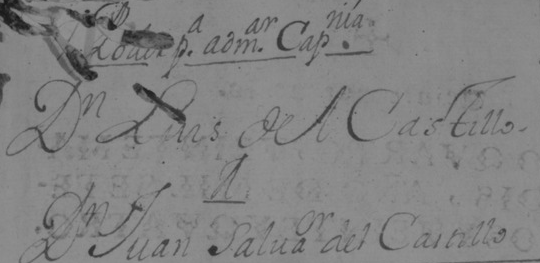 Poder p.ᵃ admᵃʳ. Capⁿⁱᵃ.
Dⁿ Luis del Castillo.
A
Dⁿ Juan Salvaᵒʳ del Castillo